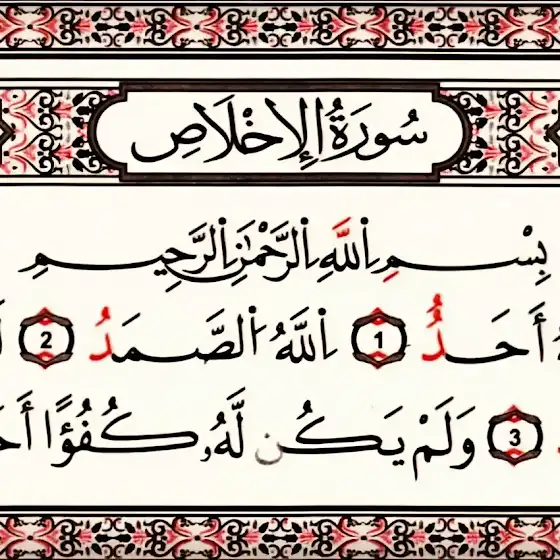 سُورَةُ الإِخْلَاصِ
بِسْمِ اللَّهِ الرَّحْمَٰنِ الرَّحِيمِ
أَحَدٌ 1 اللَّهُ الصَّمَدُ 2
3 وَلَمْ يَكُن لَّهُۥ كُفُؤًا